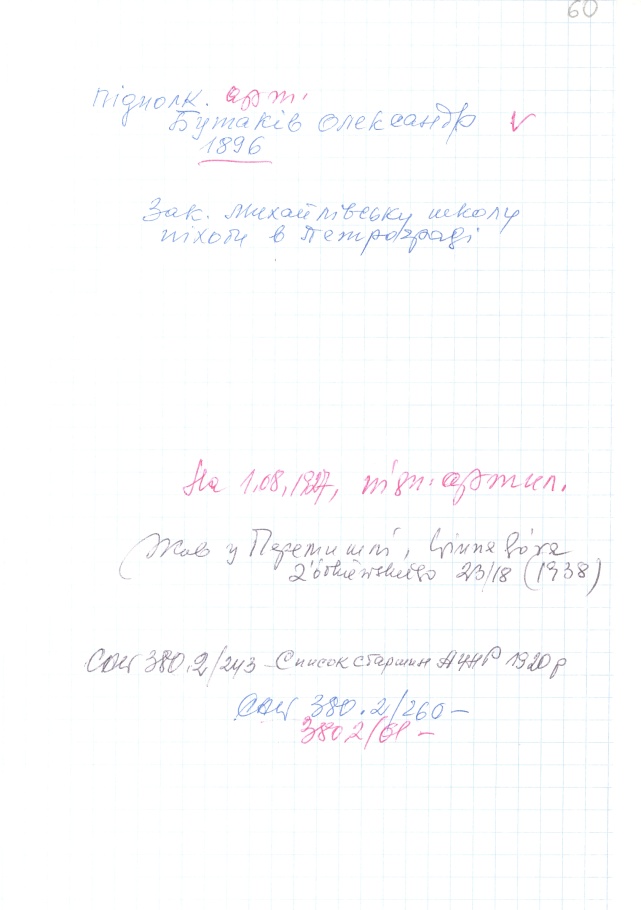 60
Підполк. арт.
Бутаків Олександр V
1896
Зак. Михайлівську школу
піхоти в Петрограді
На 1.08.1927, підп. артил.
(Жив у Перемишлі,
Żółkiewskiego 23/18 (1938)
САW 380.2/243 – Список старшин АУНР 1920 р
САW 380.2/260 –
380 2/61 –